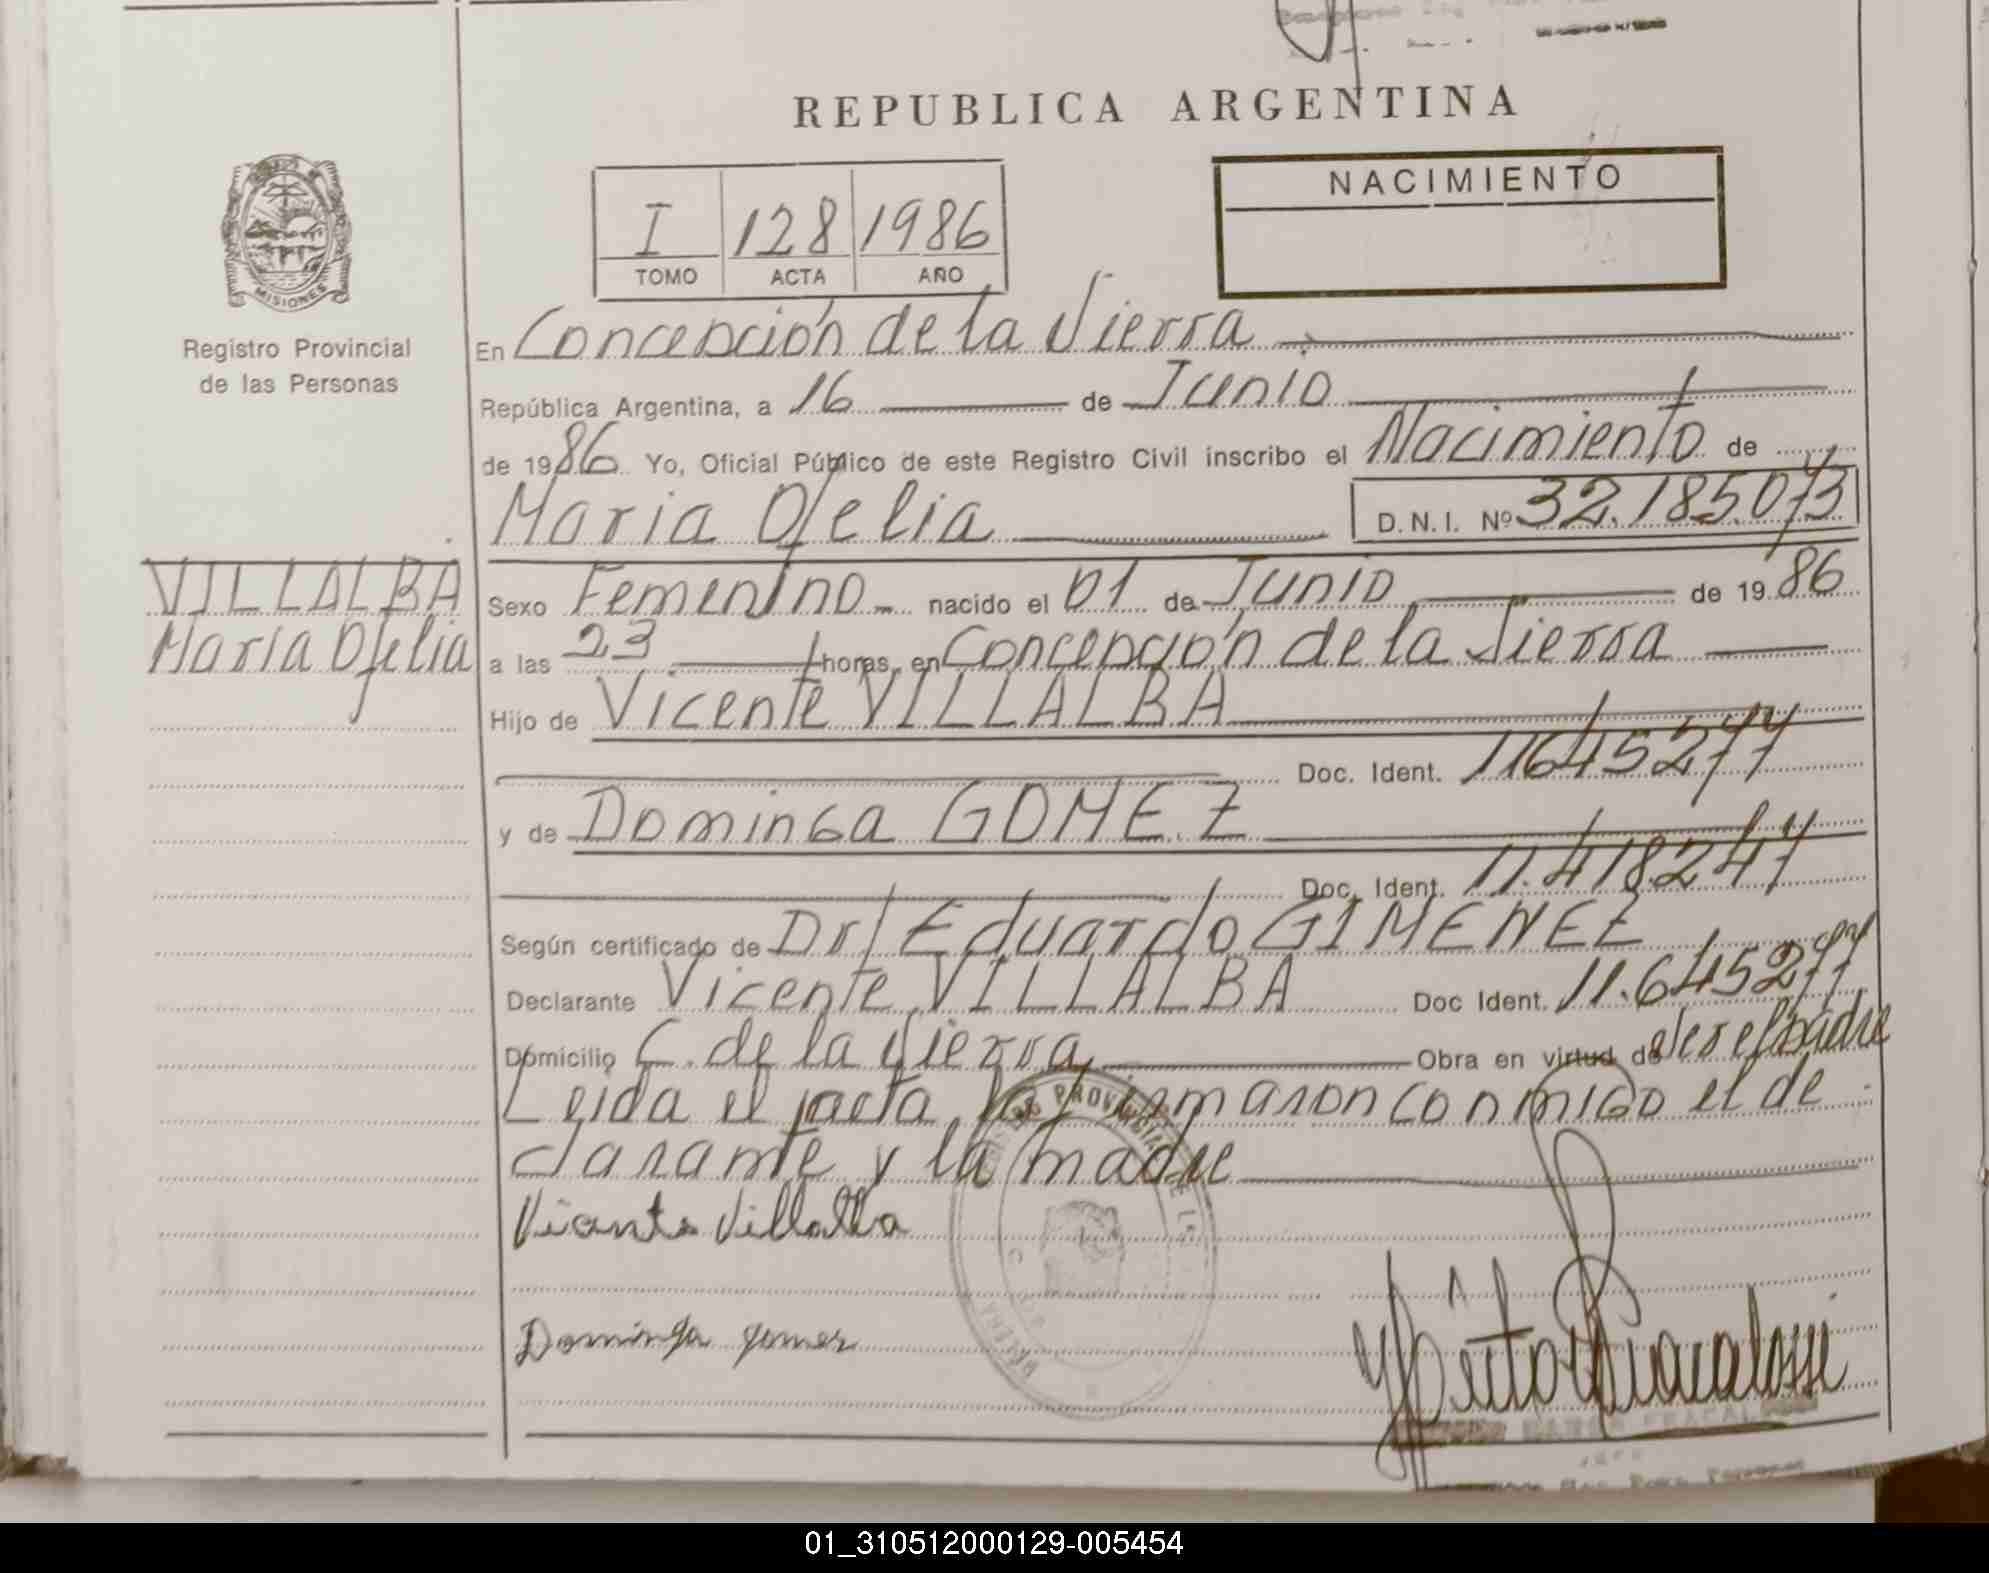 REPUBLICA ARGENTINA
I 128 1986
TOMO ACTA AÑO
NACIMIENTO
MISIONES
Registro Provincial
de las Personas
En Concepción de la Sierra
República Argentina, a 16 de Junio
de 1986 Yo, Oficial Público de este Registro Civil inscribo el Nacimiento de
Maria Ofelia D.N.I. Nº 32.185.073
VILLALBA
Maria Ofelia
Sexo Femenino nacido el 01 de Junio de 1986
a las 23 horas, en Concepción de la Sierra
Hijo de Vicente VILLALBA
Doc. Ident. 11645277
y de Dominga GOMEZ
Doc. Ident. 11.418.247
Según certificado de Dr/ Eduardo GIMENEZ
Declarante Vicente VILLALBA Doc Ident. 11.645277
Domicilio C. de la Sierra Obra en virtud de ser el padre
Leida el acta, la firmaron conmigo el de
clarante y la madre
Vicente Villalba
Dominga gomez
01_310512000129-005454